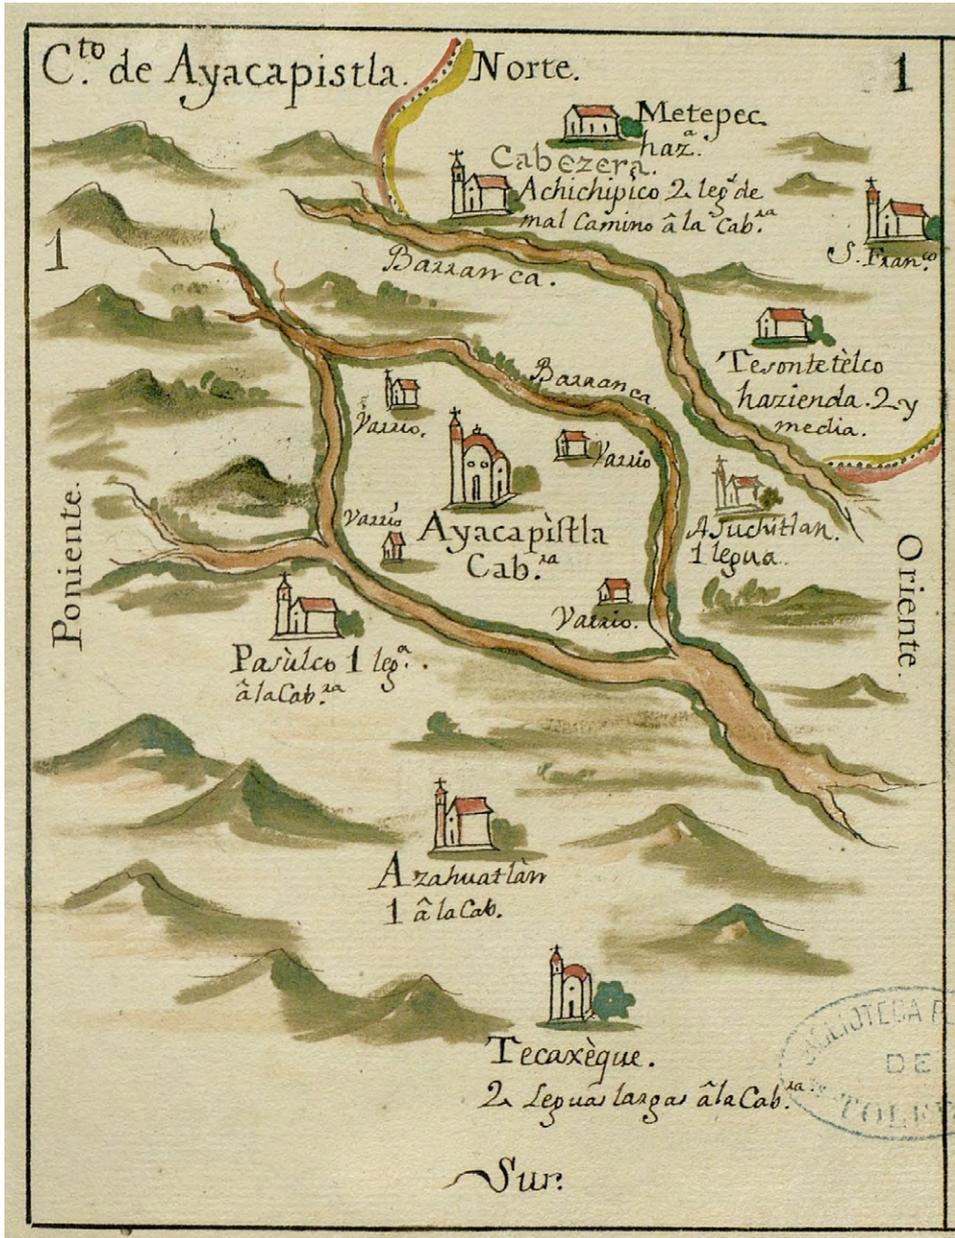 C.to de Ayacapistla.
Norte.
1
Metepec
haz.a
Cabezera.
Achichipico 2 leg.s de
mal Camino â la Cab.ra
S. Fran.co
1
Barranca.
Tesontetèlco
hazienda. 2 y
media.
Barranca
Varrio.
Varrio
Varrio
Ayacapistla
Cab.ra
Asuchitlan.
1 legua.
Poniente.
Oriente.
Varrio.
Pasùlco 1 leg.a
â la Cab.ra
Azahuatlàn
1 â la Cab.
Tecaxèque.
2 Leguas largas â la Cab.ra
BIBLIOTECA P
DE
TOLE
Sur.